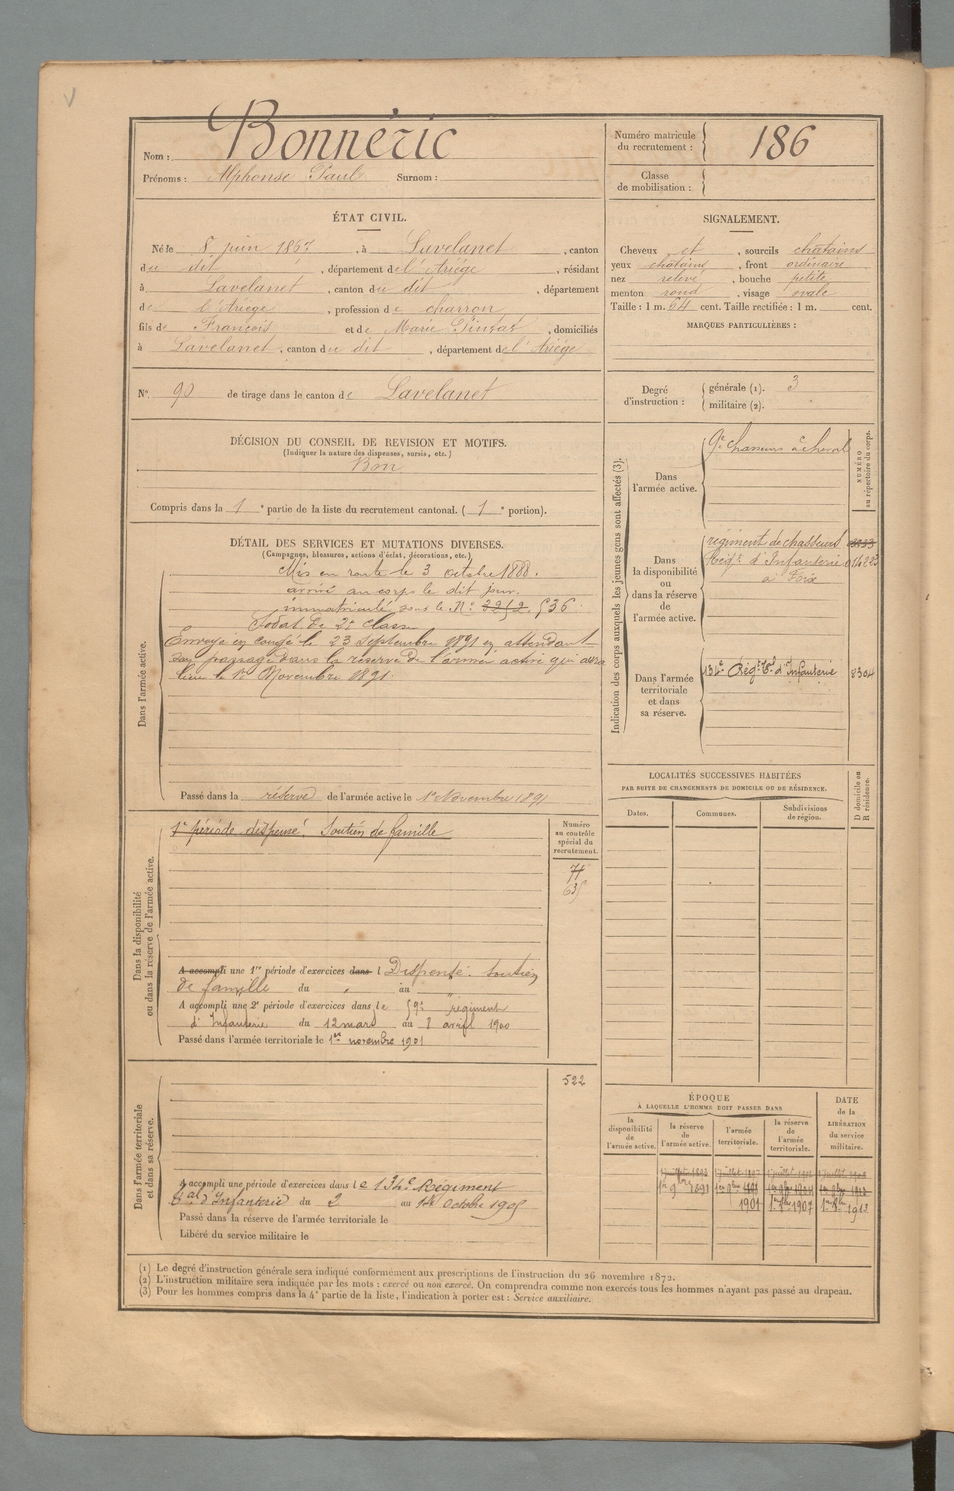 Nom : Bonnéric
Prénoms : Alphonse Paul Surnom :
Numéro matricule du recrutement : 186
Classe de mobilisation :
ÉTAT CIVIL.
Né le 8 juin 1867, à Lavelanet, canton
du dit, département de l'Ariège, résidant
à Lavelanet, canton du dit, département
de l'Ariège, profession de charron
fils de François et de Marie, domiciliés
à Lavelanet, canton du dit, département de l'Ariège
N° 90 de tirage dans le canton de Lavelanet
SIGNALEMENT.
Cheveux et, sourcils châtains
yeux châtains, front ordinaire
nez relevé, bouche petite
menton rond, visage ovale
Taille : 1 m. 64 cent. Taille rectifiée : 1 m. cent.
MARQUES PARTICULIÈRES :
Degré d'instruction : générale (1). 3
militaire (2).
DÉCISION DU CONSEIL DE REVISION ET MOTIFS.
(Indiquer la nature des dispenses, sursis, etc.)
Bon
Compris dans la 1e partie de la liste du recrutement cantonal. (1e portion).
DÉTAIL DES SERVICES ET MUTATIONS DIVERSES.
(Campagnes, blessures, actions d'éclat, décorations, etc.)
Dans l'armée active.
Mis en route le 3 octobre 1888.
arrivé au corps le dit jour.
immatriculé sous le N° 536
Soldat de 2e classe
Envoyé en congé le 23 Septembre 1891 en attendant
son passage dans la réserve de l'armée active qui aura
lieu le 1er Novembre 1891.
Passé dans la réserve de l'armée active le 1er Novembre 1891
Indication des corps auxquels les jeunes gens sont affectés (3).
NUMÉRO au répertoire du corps.
Dans l'armée active. 9e Chasseurs à cheval
Dans la disponibilité ou dans la réserve de l'armée active.
régiment de chasseurs
Régt d'Infanterie
à Foix
Dans l'armée territoriale et dans sa réserve.
134e Régt Tal d'Infanterie 8304
LOCALITÉS SUCCESSIVES HABITÉES
PAR SUITE DE CHANGEMENTS DE DOMICILE OU DE RÉSIDENCE.
Dates. Communes. Subdivisions de région. D domicile ou R résidence.
Dans la disponibilité ou dans la réserve de l'armée active.
Numéro au contrôle spécial du recrutement.
1e période dispensé. Soutien de famille
74
635
A accompli une 1re période d'exercices dans l Dispensé. Soutien
de famille du " au "
A accompli une 2e période d'exercices dans le 59e régiment
d'Infanterie du 12 mars au 8 avril 1900
Passé dans l'armée territoriale le 1er novembre 1901
Dans l'armée territoriale et dans sa réserve.
522
A accompli une période d'exercices dans le 134e Régiment
tal d'Infanterie du 2 au Octobre 1905
Passé dans la réserve de l'armée territoriale le
Libéré du service militaire le
ÉPOQUE
À LAQUELLE L'HOMME DOIT PASSER DANS
la disponibilité de l'armée active. la réserve de l'armée active. l'armée territoriale. la réserve de l'armée territoriale.
DATE de la LIBÉRATION du service militaire.
1er 9bre 1891
1901
(1) Le degré d'instruction générale sera indiqué conformément aux prescriptions de l'instruction du 26 novembre 1872.
(2) L'instruction militaire sera indiquée par les mots : exercé ou non exercé. On comprendra comme non exercés tous les hommes n'ayant pas passé au drapeau.
(3) Pour les hommes compris dans la 4e partie de la liste, l'indication à porter est : Service auxiliaire.